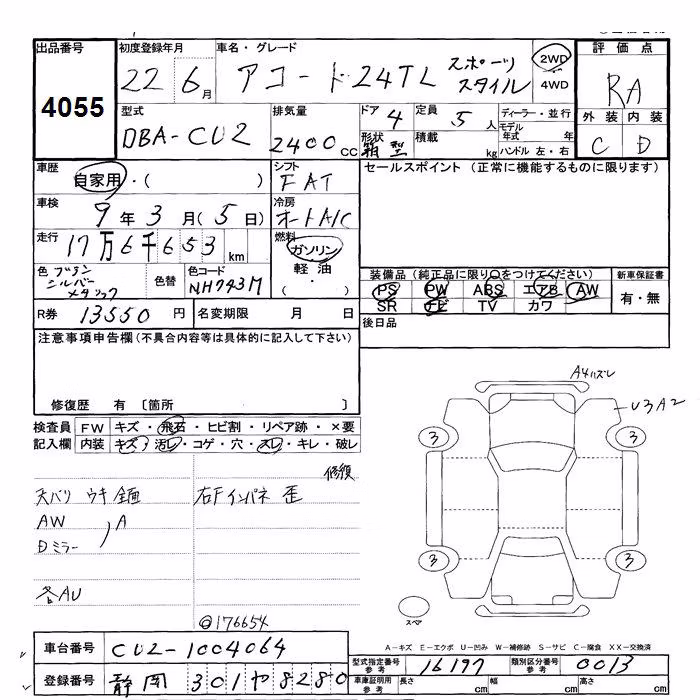 出品番号 初度登録年月 車名・グレード 評価点
4055 22年 6月 アコード 24TL スポーツスタイル 2WD 4WD RA
外装 内装
C D
型式 排気量 ドア 定員 ディーラー・並行
DBA-CU2 2400cc 4 5人 モデル年式 年
形状 積載
箱型 kg ハンドル 左・右
車歴 シフト セールスポイント (正常に機能するものに限ります)
自家用・( ) FAT
車検 冷房
9年3月(5日) オートA/C
走行 燃料
17万6千653km ガソリン
軽油・( )
色 色替 色コード NH743M
シルバー
装備品(純正品に限り○をつけてください) 新車保証書
PS PW ABS エアB AW 有・無
SR ナビ TV カワ
R券 13550円 名変期限 月 日 後日品
注意事項申告欄(不具合内容等は具体的に記入して下さい)
修復歴 有 〔箇所 〕
検査員 FW キズ・飛石・ヒビ割・リペア跡・×要
記入欄 内装 キズ・汚レ・コゲ・穴・スレ・キレ・破レ
修復
天バリ ウキ 全面 右Fインパネ 歪
AW A
Dミラー
各AU
@176654
A4ハズレ
U3A2
3 3
3 3
スペア
A-キズ E-エクボ U-凹み W-補修跡 S-サビ C-腐食 XX-交換済
車台番号 CU2-1004064
登録番号 静岡 301 や 8280
型式指定番号 参考 16197 類別区分番号 参考 0013
車庫証明用 参考 長さ cm 幅 cm 高さ cm